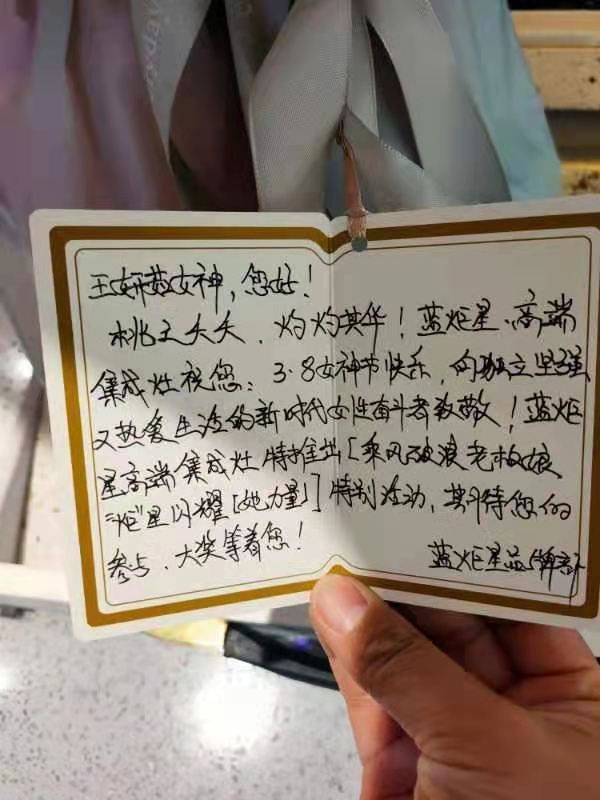 王妍茹女神，您好！
桃之夭夭、灼灼其华！蓝炬星、高端
集成灶祝您：3·8女神节快乐，向独立坚强
又热爱生活的新时代女性奋斗者致敬！蓝炬
星高端集成灶特推出[乘风破浪老板娘
"炬"星闪耀[她力量]]特别活动，期待您的
参与、大奖等着您！
蓝炬星品牌部